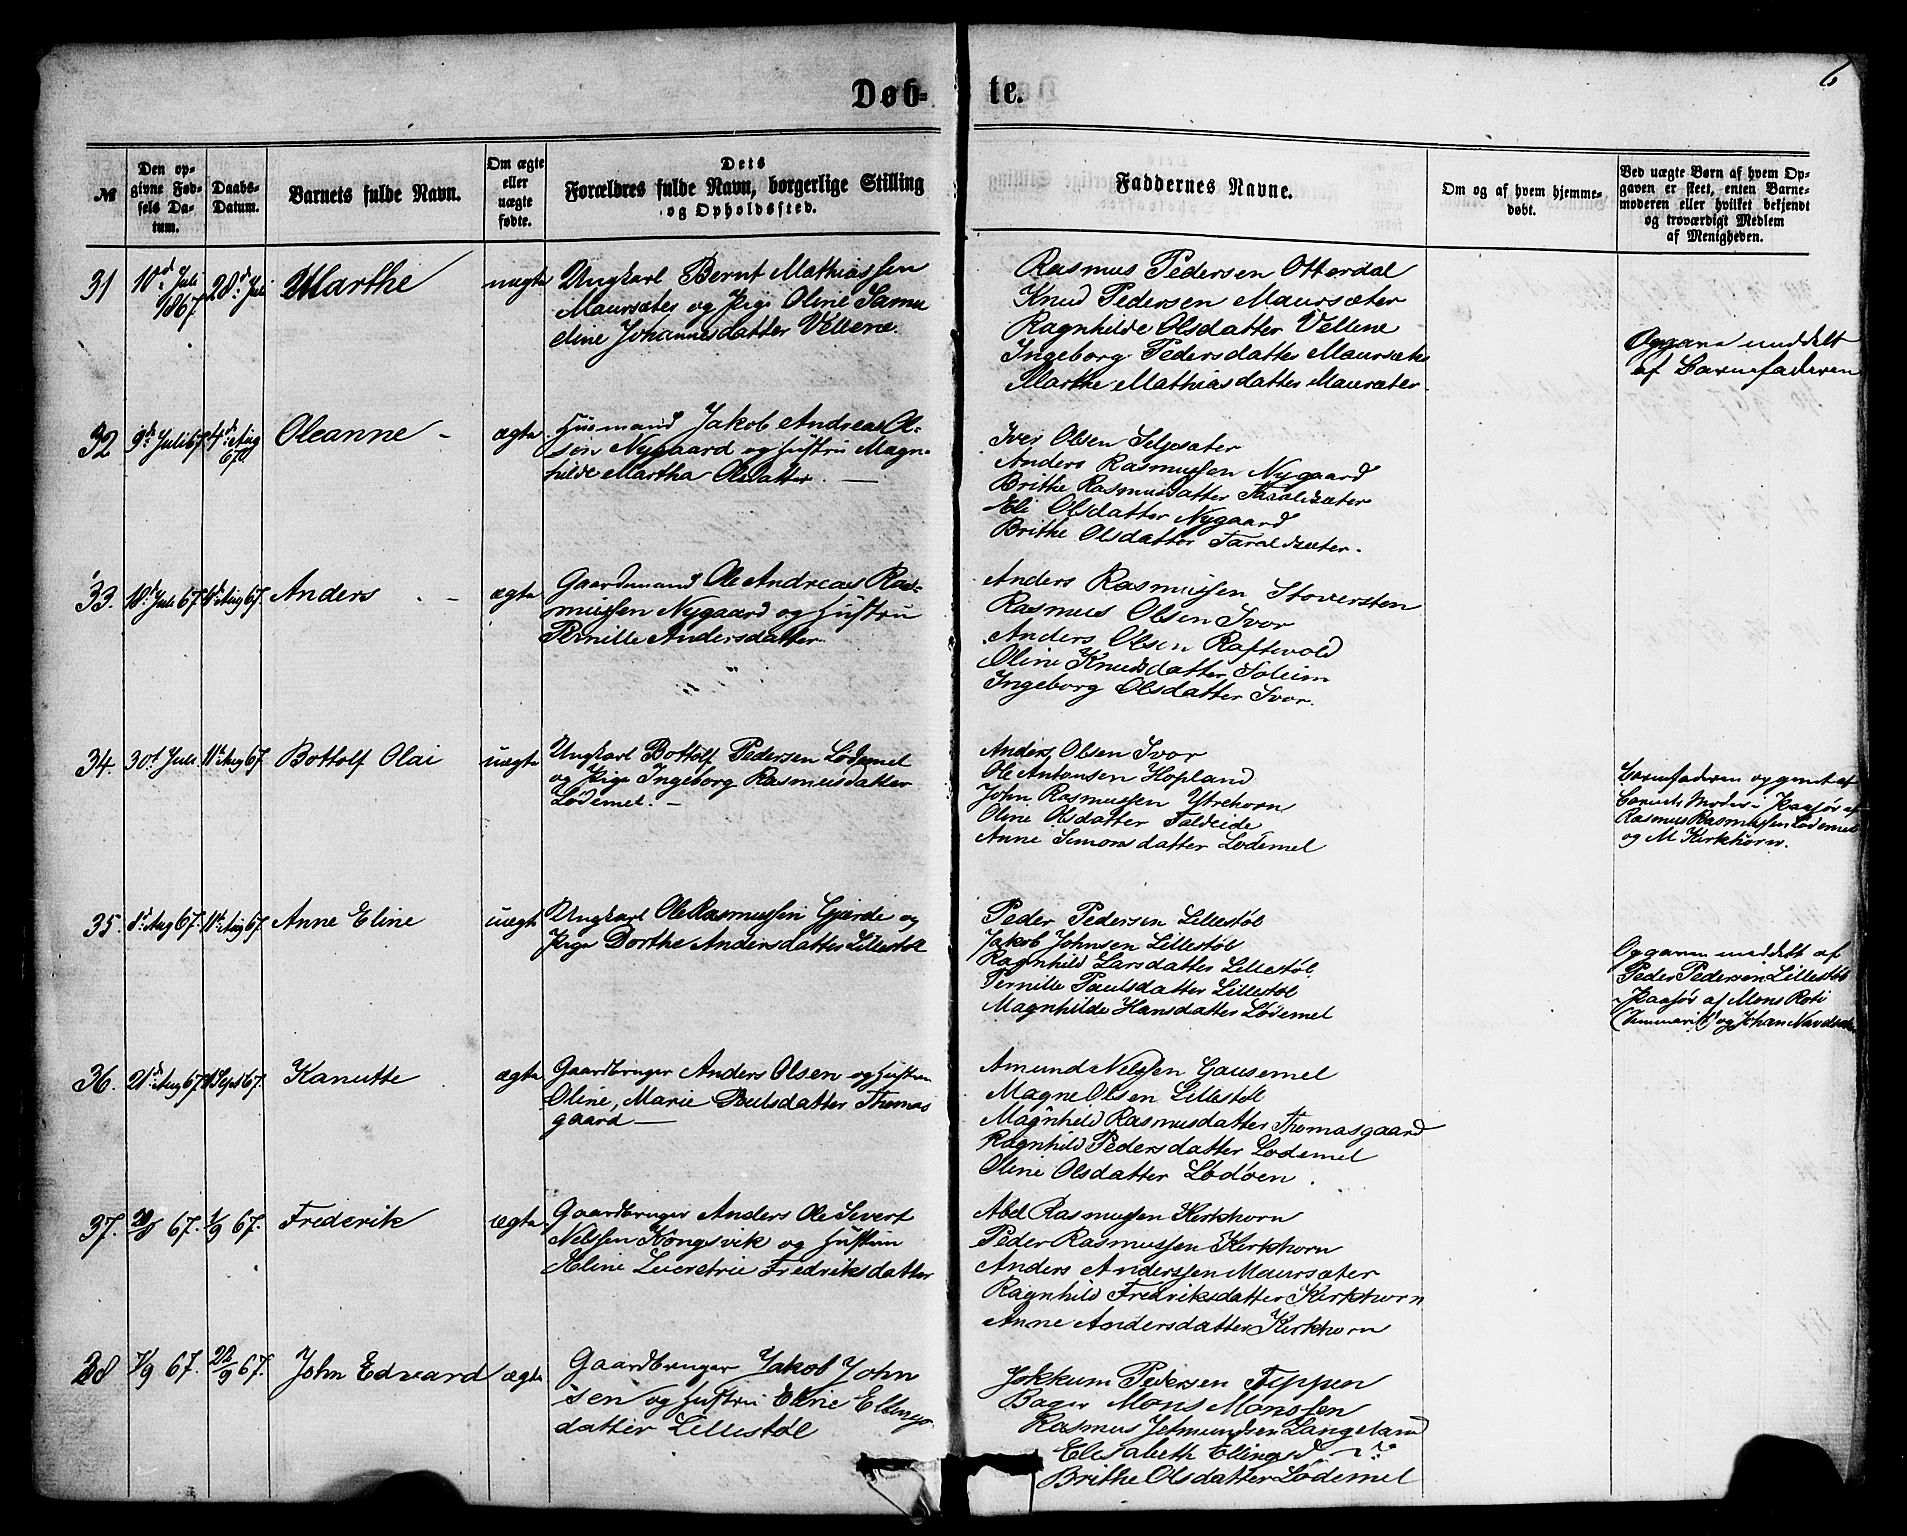 Døb-
te.
6
№
Den op-
givne Fød-
sels Da-
tum.
Daabs-
Datum.
Barnets fulde Navn.
Om ægte
eller
uægte
fødte.
Dets
Forældres fulde Navn, borgerlige Stilling
og Opholdssted.
Faddernes Navne.
Om og af hvem hjemme-
døbt.
Ved uægte Børn af hvem Op-
gaven er skeet, enten Barne-
moderen eller hvilket bekjendt
og troværdigt Medlem
af Menigheden.
31
10d. Juli
1867
28d. Juli
Marthe
uægte
Ungkarl Bernt Mathiassen
Maursæter og Pige Oline Samu
eline Johannesdatter Vellene.
Rasmus Pedersen Otterdal
Knud Pedersen Maursæter
Ragnhilde Olsdatter Vellene
Ingeborg Pedersdatter Maursæter
Marthe Mathiasdatter Maursæter.
Opgave meddelt
af Barnefaderen
32
9d. Juli 67.
4d. Aug
67.
Oleanne -
ægte
Husmand Jakob Andreas Ol-
sen Nygaard og Hustru Magn-
hilde Martha Olsdatter. —
Iver Olsen Seljesæter
Anders Rasmussen Nygaard
Brithe Rasmusdatter Taraldsæter
Eli Olsdatter Nygaard
Brithe Olsdatter Taraldsæter.
33.
18d. Juli 67.
4d. Aug 67.
Anders . -
ægte
Gaardmand Ole Andreas Ras-
mussen Nygaard og Hustru
Pernille Andersdatter.
Anders Rasmussen Stoversten
Rasmus Olsen Ivor
Anders Olsen Raftevold
Oline Knudsdatter Soleim
Ingeborg Olsdatter Ivor.
34.
30d Juli.
11te Aug 67.
Bottolf Olai
uægte
Ungkarl Bottolf Pedersen Lødemel
og Pige Ingeborg Rasmusdatter
Lødemel. —
Anders Olsen Ivor
Ole Antonsen Hopland
John Rasmussen Ytrehorn
Oline Olsdatter Faldeide
Anne Simonsdatter Lødemel
Barnefaderen opgivet af
Barnets Moder i Paasør af
Rasmus Rasmussen Lødemel
og M Kirkhorn.
35.
8d. Aug 67.
11te Aug 67.
Anne Eline
uægte
Ungkarl Ole Rasmussen Gjærde og
Pige Dorthe Andersdatter Lillestøl
Peder Pedersen Lillestøl
Jakob Johnsen Lillestøl
Ragnhild Larsdatter Lillestøl
Pernille Paulsdatter Lillestøl
Magnhilde Hansdatter Lødemel
Opgaven meddelt af
Peder Pedersen Lillestøl
i Paasør af Mons Roti
(Seminarist) og Johan
36.
21d. Aug 67.
1 Sept 67.
Kanutte
ægte
Gaardbruger Anders Olsen og Hustru
Oline Marie Poulsdatter Thomas
gaard —
Amund Nelssen Gausemel
Magne Olsen Lillestøl
Magnhild Rasmusdatter Thomasgaard
Ragnhild Pedersdatter Lødemel
Oline Olsdatter Lødøen.
37.
20/8 67.
1/9 67.
Frederik
ægte
Gaardbruger Anders Ole Sivert
Nelssen Kongsvik og Hustru
Eline Severetrie Fredriksdatter
Abel Rasmussen Kirkhorn
Peder Rasmussen Kirkhorn
Anders Anderssen Maursæter
Ragnhild Fredriksdatter Kirkhorn
Anne Andersdatter Kirkhorn
38
7/9 67.
22/9 67.
John Edvard
ægte
Gaardbruger Jakob John
sen og Hustru Eline Ellings
datter Lillestøl
Jokkum Pedersen Tippen
Bager Mons Monssen
Rasmus Jetmundsen Langeland
Elisabeth Ellingsd.
Brithe Olsdatter Lødemel